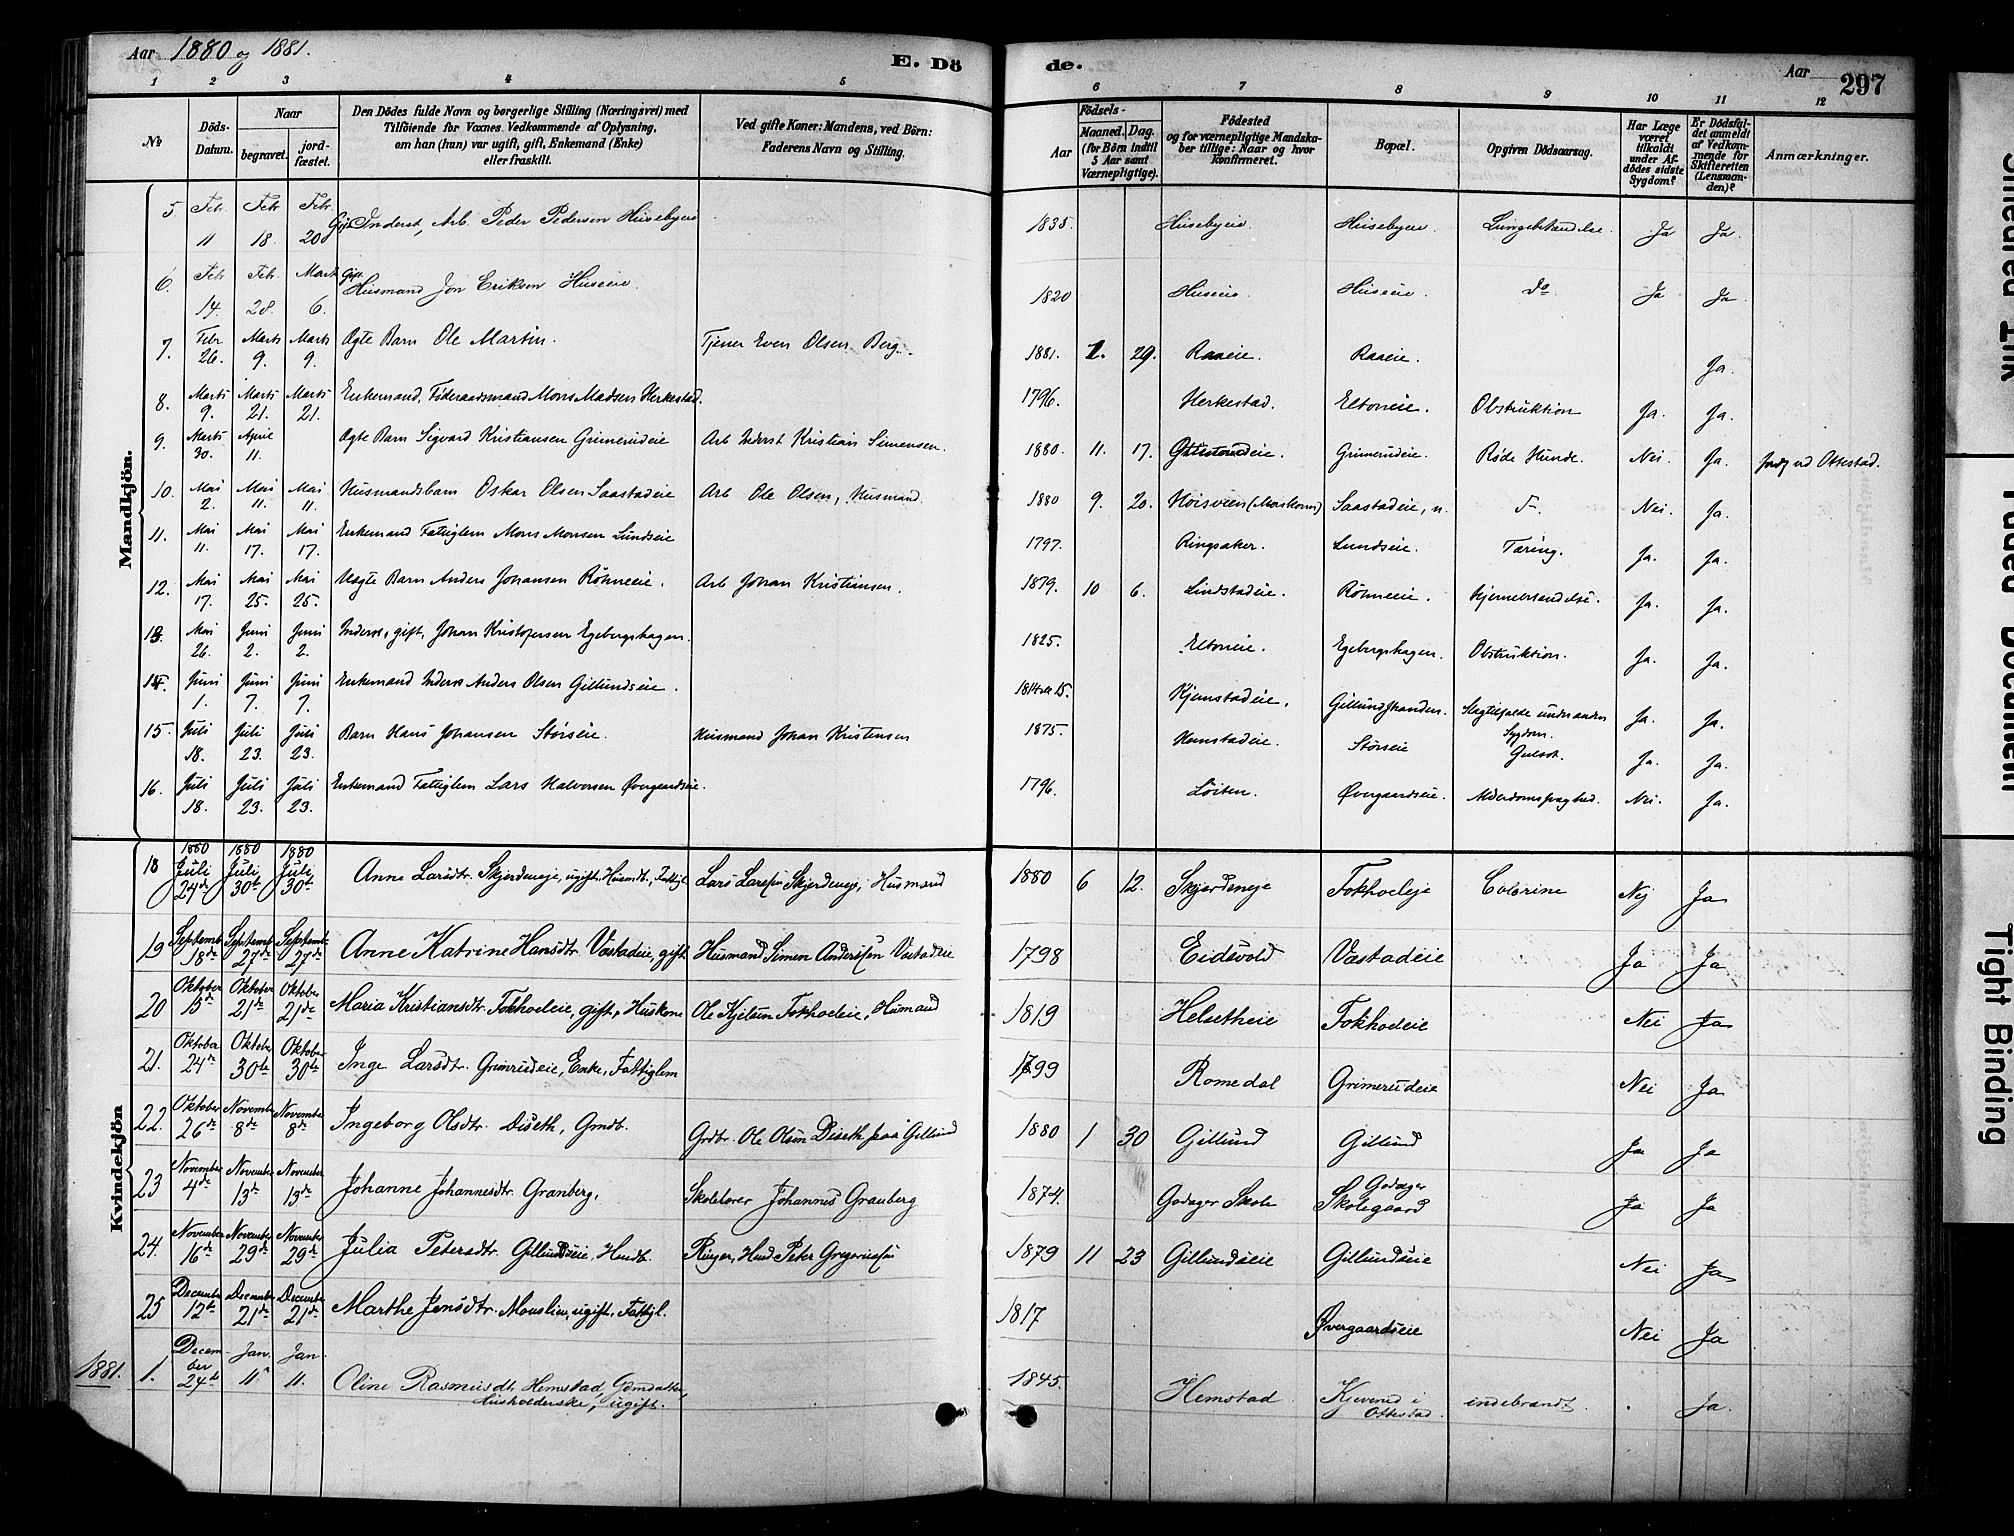 Aar 1880 og 1881.
E. Dö
de.
Aar
297
1 2 3 4 5 6 7 8 9 10 11 12
No
Döds-Datum.
Naar
begravet.
jord-fæstet.
Den Dödes fulde Navn og borgerlige Stilling (Næringsvei) med
Tilföiende for Voxnes Vedkommende af Oplysning,
om han (hun) var ugift, gift, Enkemand (Enke)
eller fraskilt.
Ved gifte Koner: Mandens, ved Börn:
Faderens Navn og Stilling.
Födsels-
Aar
Maaned. Dag.
(for Börn indtil
5 Aar samt
Værnepligtige).
Födested
og for værnepligtige Mandska-
ber tillige: Naar og hvor
konfirmeret.
Bopæl.
Opgiven Dödsaarsag.
Har Læge
været
tilkaldt
under Af-
dödes sidste
Sygdom?
Er Dödsfal-
det anmeldt
af Vedkom-
mende for
Skifteretten
(Lensman-
den)?
Anmærkninger.
Mandkjön.
5 Febr 11 Febr 18 Febr. 20 Gift Inderst, Arb. Peder Pedersen Husebyeie 1835. Husebyeie. Husebyeie. Lungebetændelse. Ja Ja.
6. Febr 14. Febr 28. Marts 6. Gift Husmand Jon Eriksen Huseie. 1820 Huseie Huseie. Do Ja Ja.
7. Febr 26. Marts 9. Marts 9. Ægte Barn Ole Martin. Tjener Even Olsen Berg. 1881. 1. 29. Raaeie. Raaeie. Ja.
8. Marts 9. Marts 21. Marts 21. Enkemand, Föderaadsmand Mons Madsen Herkestad. 1796. Herkestad. Eltoneie. Obstruktion Ja. Ja.
9. Marts 30. April 11. Ægte Barn Sigvard Kristiansen Grimerudeie Arb Inderst Kristian Simensen. 1880. 11. 17. Grimerudeie. Røde Hunde. Nei. Ja. Ottestad.
10. Mai 2. Mai 11. Mai 11. Husmandsbarn Oskar Olsen Saastadeie Arb Ole Olsen, Husmand. 1880 9. 20. Saastadeie, n. Nei. Ja.
11. Mai 11. Mai 17. Mai 17. Enkemand Fattiglem Mons Monsen Lundseie 1797. Ringsaker. Lundseie. Tæring. Ja. Ja.
12. Mai 17. Mai 25. Mai 25. Uægte Barn Anders Johansen Röhneeie. Arb Johan Kristiansen. 1879. 10 6. Lindstadeie. Röhneeie. Hjernebetændelse. Ja. Ja.
13. Mai 26. Juni 2. Juni 2. Inderst, gift, Johan Kristofersen Egebergshagen. 1825. Eltoneie. Egebergshagen. Obstruktion. Ja. Ja.
14. Juni 1. Juni 7. Juni 7. Enkemand Inderst Anders Olsen Gillundseie. 1814 el 15. Kjemstadeie. Slagtilfælde under anden Sygdom. Ja. Ja.
15. Juli 18. Juli 23. Juli 23. Barn Hans Johansen Störseie. Husmand Johan Kristensen 1875. Hemstadeie. Störseie Gulsot. Ja. Ja.
16. Juli 18. Juli 23. Juli 23. Enkemand Fattiglem Lars Halvorsen Øvergaardseie. 1796. Löiten. Øvergaardseie. Alderdomssvaghed. Nei. Ja.
Kvindekjön
18 1880 Juli 24de 1880 Juli 30te 1880 Juli 30te Anne Larsdtr. Skjerdeneje, ugift, Lars Larsen Skjerdeneje, Husmand 1880 6 12. Skjerdeneje Fokholeje Colerine Nej Ja
19 Septembr 18de Septembr 27de Septembr 27de Anne Katrine Hansdtr Væstadeie, gift Husmand Simen Anderssen Vestadeie 1798 Eidsvold Væstadeie Ja Ja
20 Oktober 15de Oktober 21de Oktober 21de Maria Kristiansdtr. Fokholeie, gift, Huskone Ole Fokholeie, Husmand 1819 Helsetheie Fokholeie Nei Ja
21. Oktober 24de Oktober 30te Oktober 30te Inge Larsdtr. Grimrudeie, Enke, Fattiglem 1799 Romedal Grimerudeie Nei Ja
22. Oktober 26de November 8de November 8de Ingeborg Olsdtr. Diseth, Grndb. Grdbr. Ole Olsen Diseth paa Gillund 1880 1 30 Gillund Gillund Ja Ja
23 November 4de November 13de November 13de Johanne Johannesdtr. Granberg, Skolelærer Johannes Granberg 1874. Godager Skole Godager Skolegaard Ja Ja
24. November 16de November 29de November 29de Julia Petersdtr. Gillundseie, Husdb. Ringer, Husd Peter Gregoriusen 1879 11 23 Gillundseie Gillundseie Nei Ja
25 December 12te December 21de December 21de Marthe Jensdtr. Mouslien, ugift, Fattigl. 1817 Øvergaardseie Nei Ja
1881. 1. December 24de Jan. 11 Jan. 11. Oline Rasmusdt. Hemstad, Gdmdatter, Husholderske, ugift. 1845. Hemstad i Ottestad. indebrændt. Ja.
Tight Binding